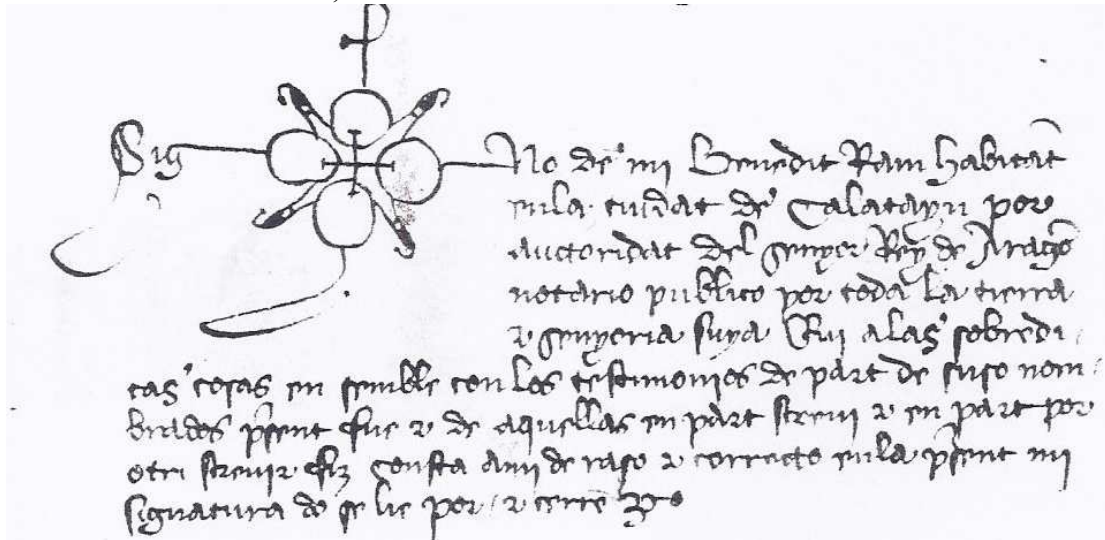 Sig No de mi Benedit Ram habitāt
en la ciudat de Calatayu por
auctoridat del senyor Rey de Aragō
notario publico por toda la tierra
& senyoria suya Qui a las sobredi
tas cosas en semble con los testimonios de part de suso nom
brados p̄sent fue & de aquellas en part screvi & en part por
otri screvir fiz consta a mi de raso & correcto en la p̄sent mi
signatura do se lie por &